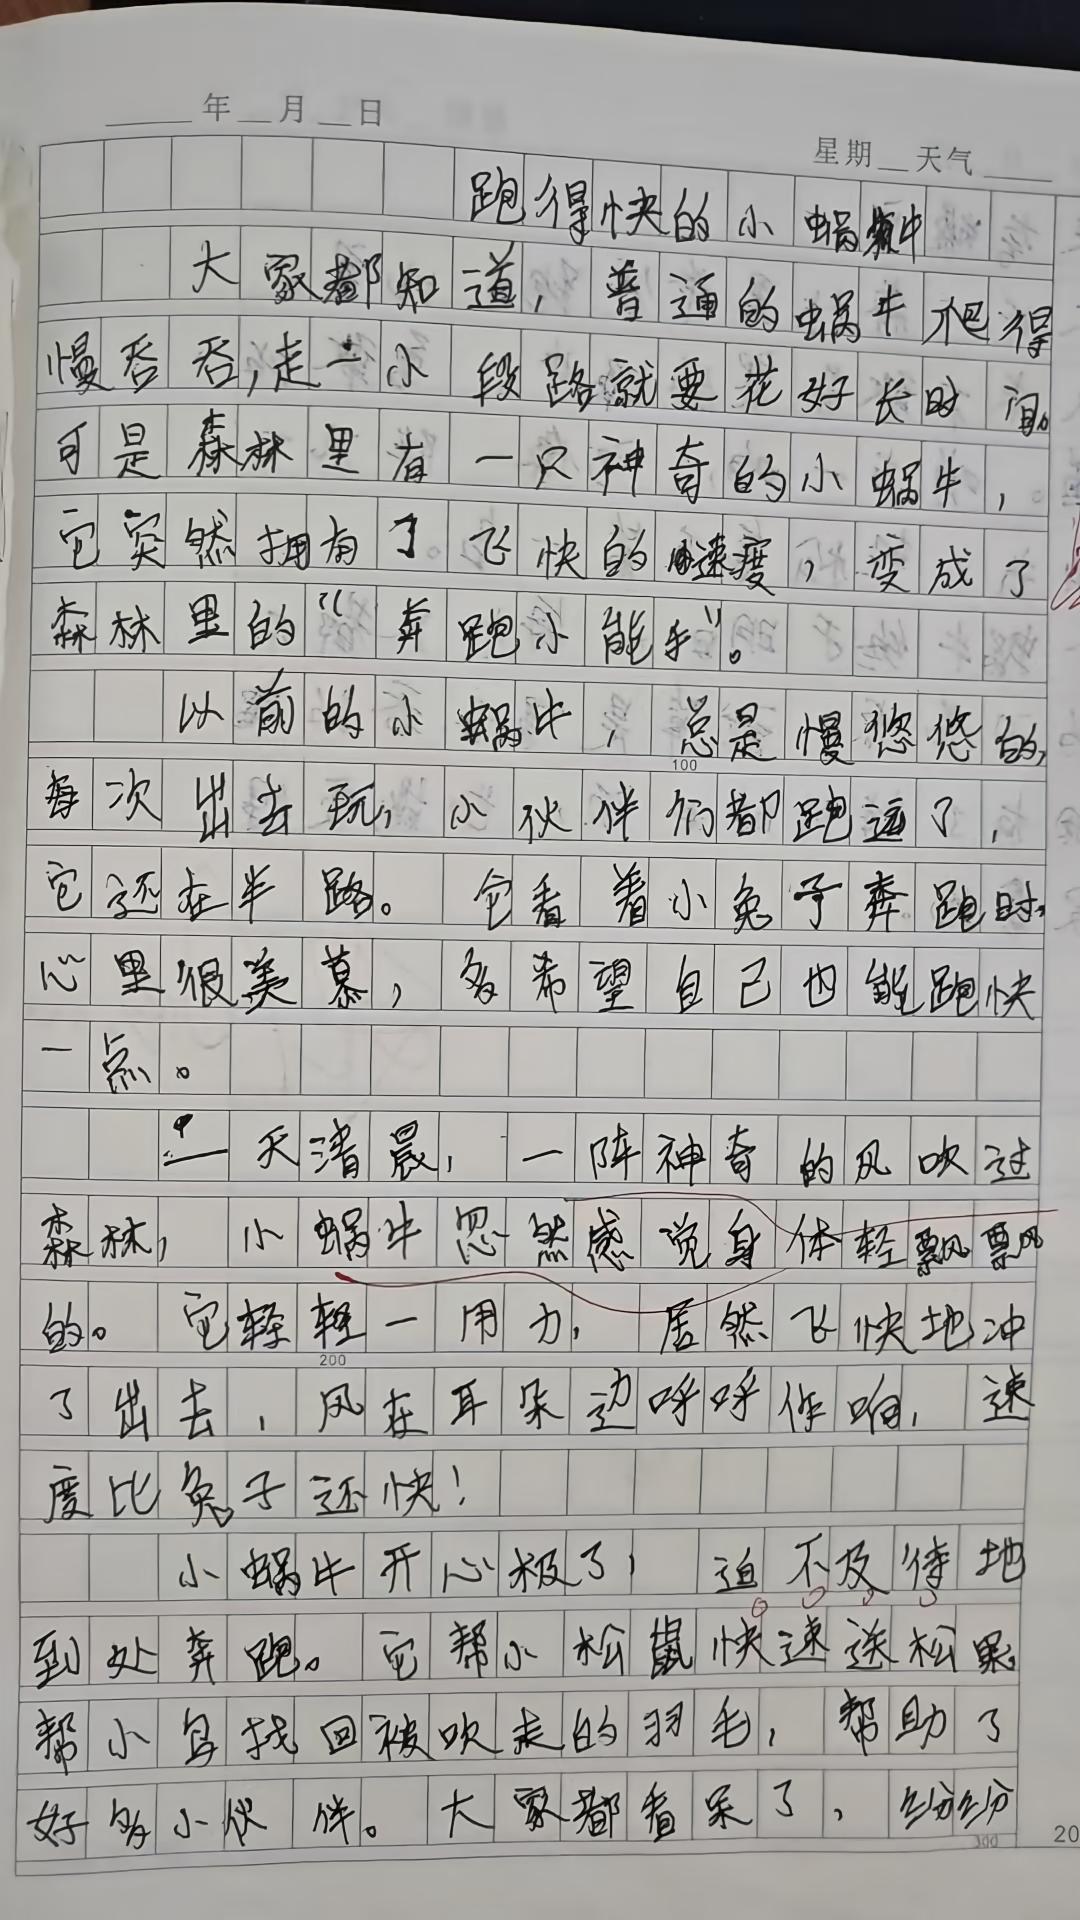 年 月 日
星期 天气
跑得快的小蜗牛
大家都知道，普通的蜗牛爬得
慢吞吞，走一小段路就要花好长时间。
可是森林里有一只神奇的小蜗牛，
它突然拥有了飞快的速度，变成了
森林里的“奔跑小能手”。
以前的小蜗牛，总是慢悠悠的，
100
每次出去玩，小伙伴们都跑远了，
它还在半路。它看着小兔子奔跑时，
心里很羡慕，多希望自己也能跑快
一点。
一天清晨，一阵神奇的风吹过
森林，小蜗牛忽然感觉身体轻飘飘
的。它轻轻一用力，居然飞快地冲
200
了出去，风在耳朵边呼呼作响，速
度比兔子还快！
小蜗牛开心极了，迫不及待地
到处奔跑。它帮小松鼠快速送松果，
帮小鸟找回被吹走的羽毛，帮助了
好多小伙伴。大家都看呆了，纷纷
300
20